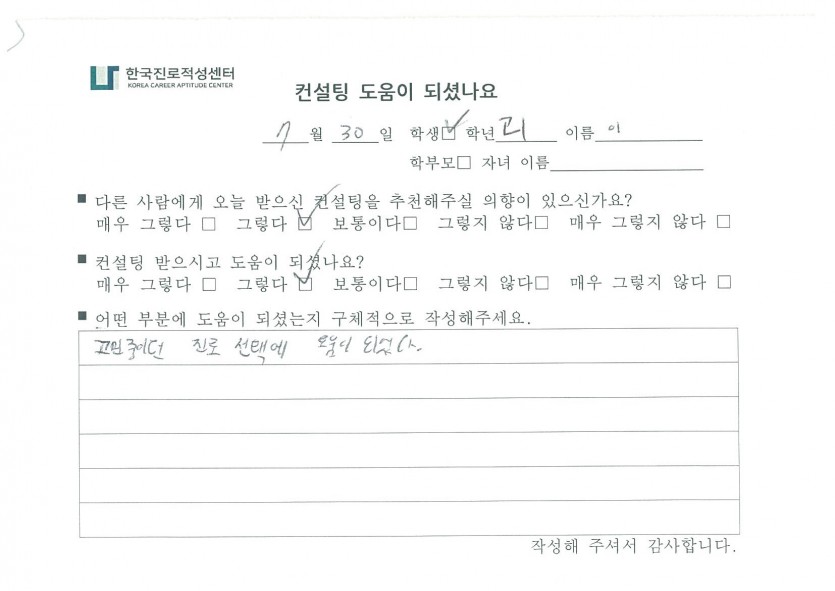 한국진로적성센터
KOREA CAREER APTITUDE CENTER
컨설팅 도움이 되셨나요
7 월 30 일 학생☑ 학년 고1 이름 이
학부모□ 자녀 이름
■ 다른 사람에게 오늘 받으신 컨설팅을 추천해주실 의향이 있으신가요?
매우 그렇다 □ 그렇다 ☑ 보통이다□ 그렇지 않다□ 매우 그렇지 않다 □
■ 컨설팅 받으시고 도움이 되셨나요?
매우 그렇다 □ 그렇다 ☑ 보통이다□ 그렇지 않다□ 매우 그렇지 않다 □
■ 어떤 부분에 도움이 되셨는지 구체적으로 작성해주세요.
고민 중이던 진로 선택에 도움이 되었다.
작성해 주셔서 감사합니다.